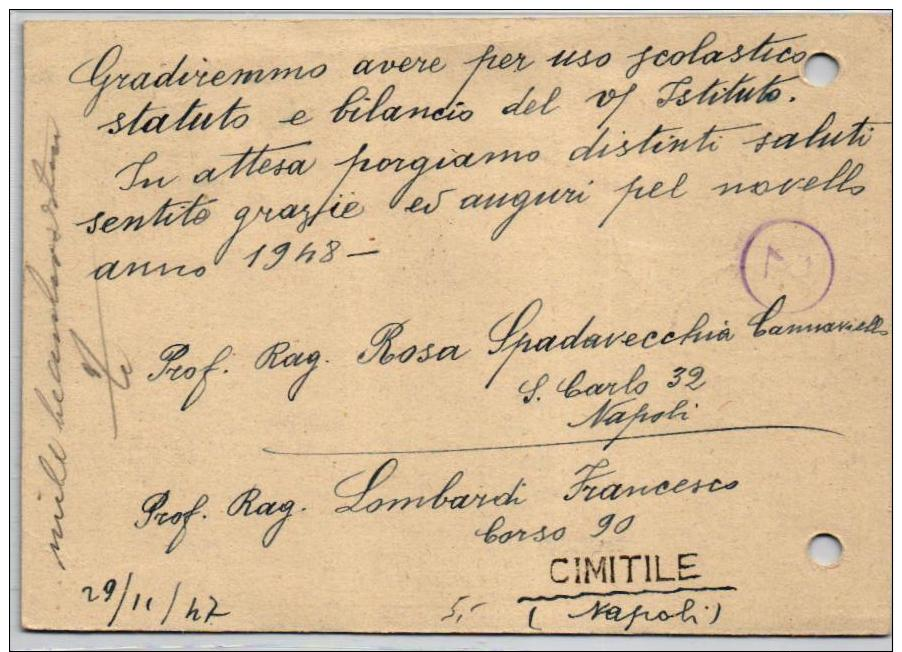 Gradiremmo avere per uso scolastico
statuto e bilancio del v/ Istituto.
In attesa porgiamo distinti saluti
sentite grazie ed auguri pel novello
anno 1948 —
Prof. Rag. Rosa Spadavecchia Cannaviello
S. Carlo 32
Napoli
Prof. Rag. Lombardi Francesco
Corso 90
CIMITILE
(Napoli)
29/11/47
5,-